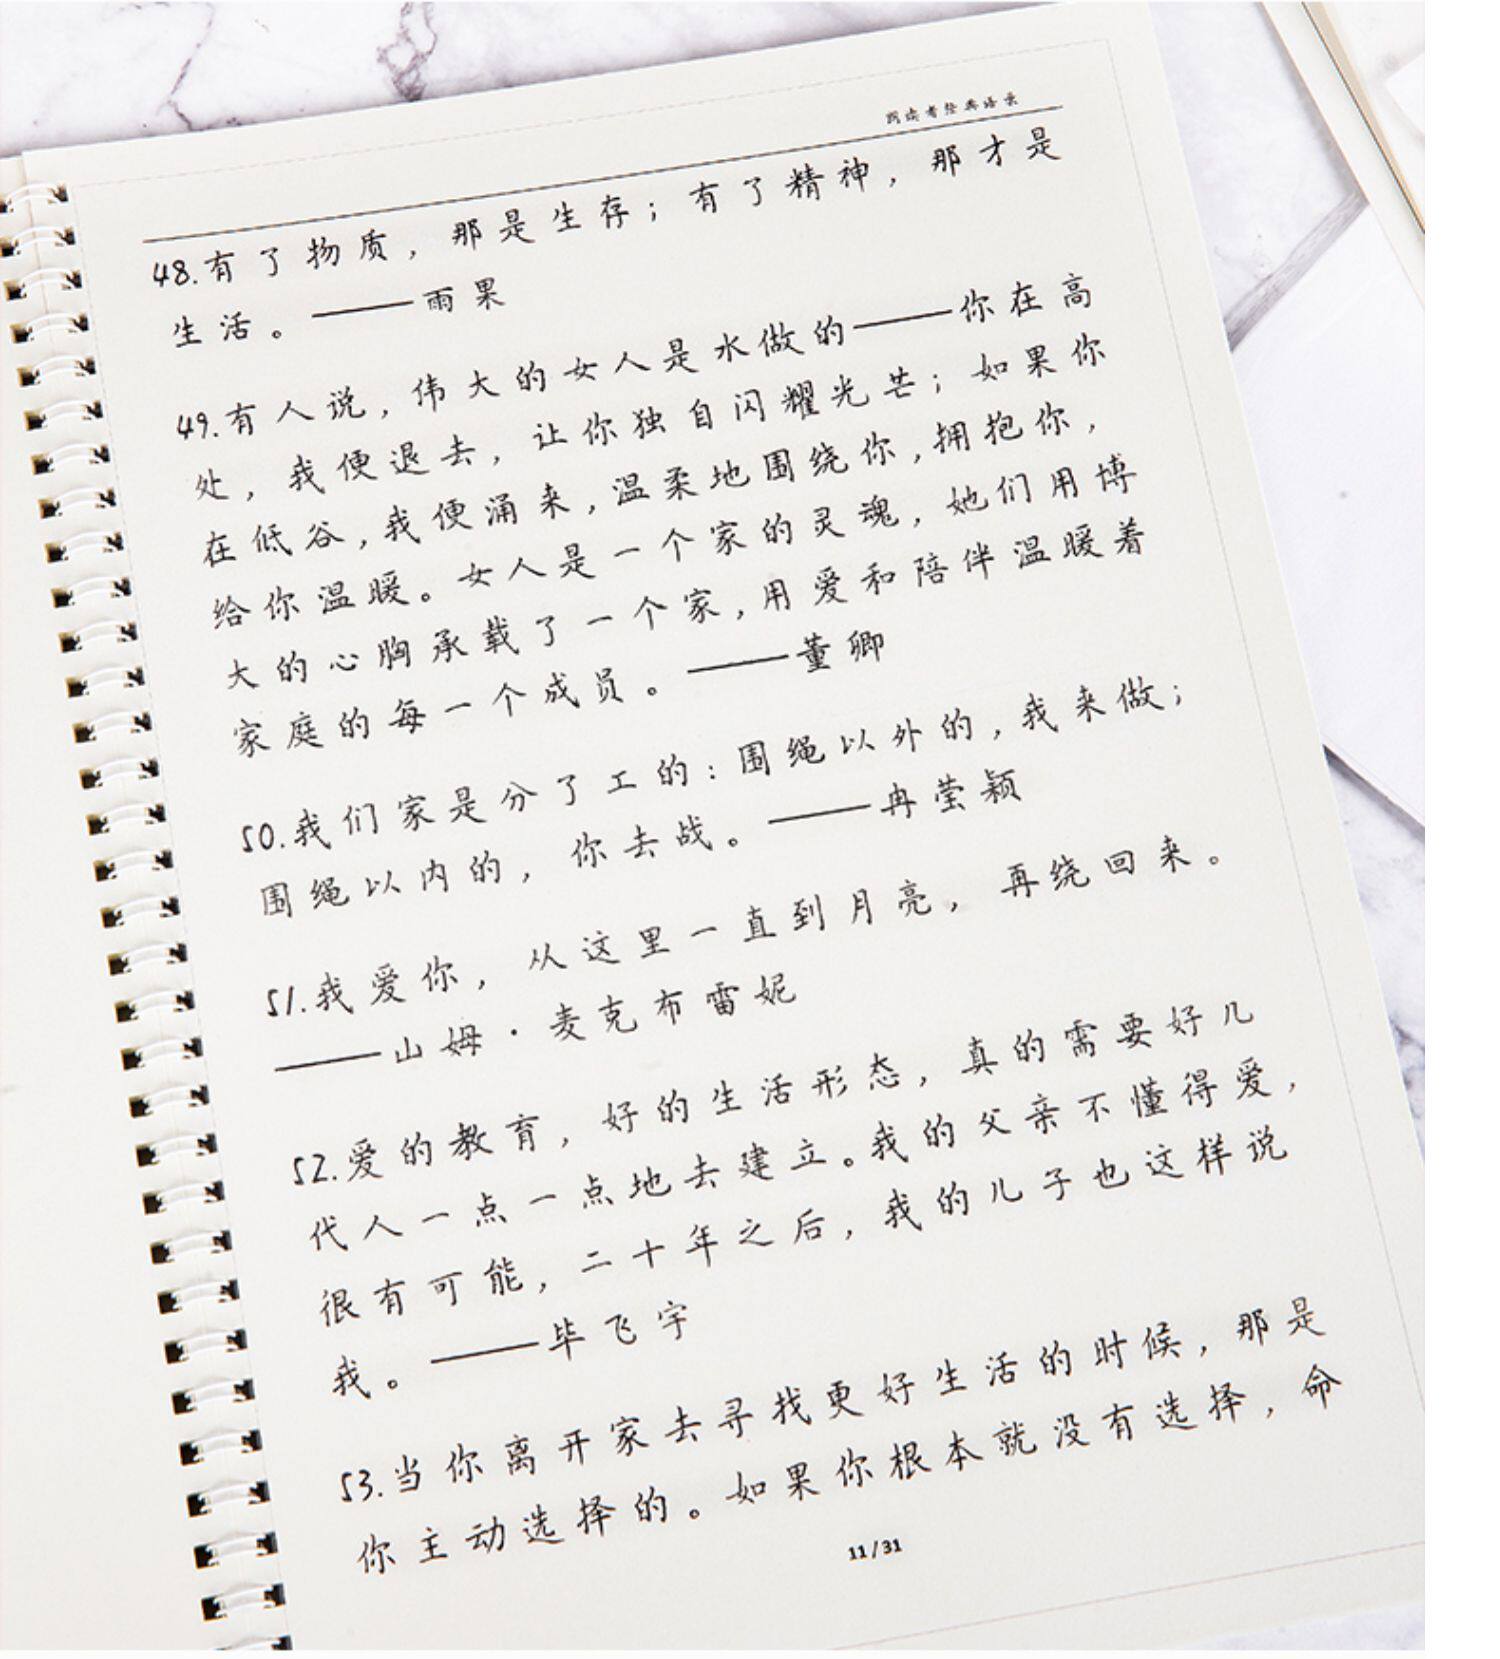 朗读者经典语录
48.有了物质，那是生存；有了精神，那才是
生活。——雨果
49.有人说，伟大的女人是水做的——你在高
处，我便退去，让你独自闪耀光芒；如果你
在低谷，我便涌来，温柔地围绕你，拥抱你，
给你温暖。女人是一个家的灵魂，她们用博
大的心胸承载了一个家，用爱和陪伴温暖着
家庭的每一个成员。——董卿
50.我们家是分了工的：围绳以外的，我来做；
围绳以内的，你去战。——冉莹颖
51.我爱你，从这里一直到月亮，再绕回来。
——山姆·麦克布雷妮
52.爱的教育，好的生活形态，真的需要好几
代人一点一点地去建立。我的父亲不懂得爱，
很有可能，二十年之后，我的儿子也这样说
我。——毕飞宇
53.当你离开家去寻找更好生活的时候，那是
你主动选择的。如果你根本就没有选择，命
11/31